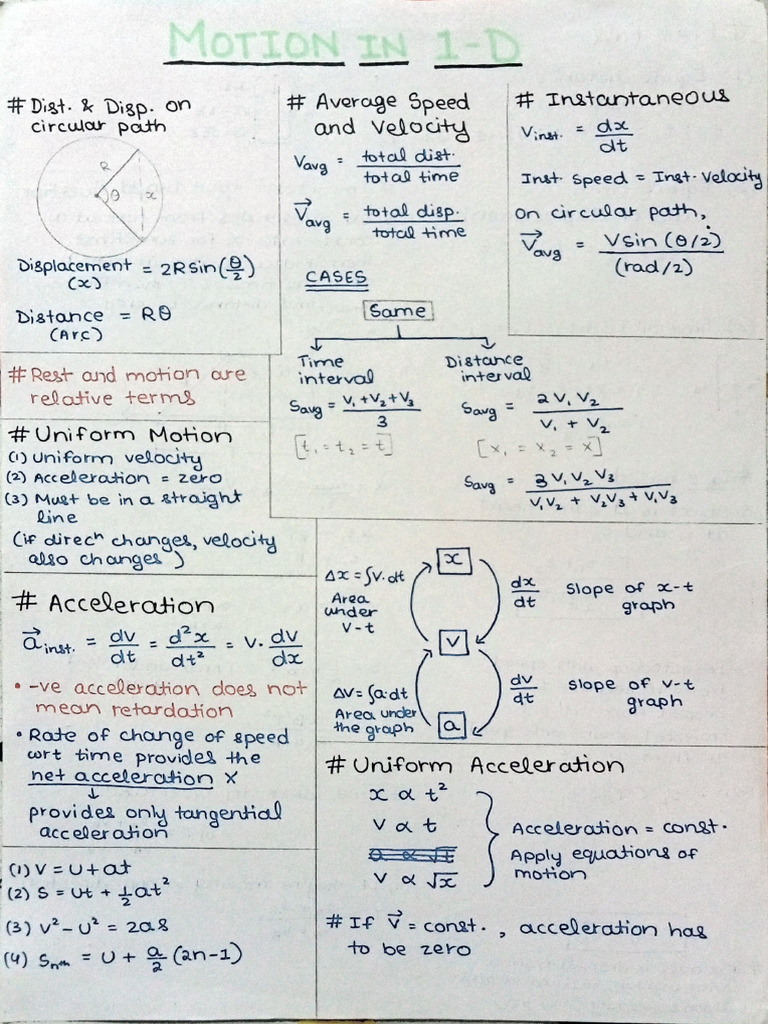 MOTION IN 1-D
# Dist. & Disp. on
circular path
R
θ
x
Displacement = 2R sin(θ/2)
(x)
Distance = Rθ
(Arc)
# Average Speed
and Velocity
Vavg = total dist. / total time
V⃗avg = total disp. / total time
CASES
Same
Time
interval
Savg = V₁ + V₂ + V₃ / 3
[t₁ = t₂ = t]
Distance
interval
Savg = 2V₁V₂ / V₁ + V₂
[x₁ = x₂ = x]
Savg = 3V₁V₂V₃ / V₁V₂ + V₂V₃ + V₁V₃
# Instantaneous
Vinst. = dx/dt
Inst. speed = Inst. velocity
on circular path,
V⃗avg = Vsin(θ/2) / (rad/2)
# Rest and motion are
relative terms
# Uniform Motion
(1) Uniform velocity
(2) Acceleration = zero
(3) Must be in a straight
line
(if direcn changes, velocity
also changes)
# Acceleration
a⃗inst. = dv/dt = d²x/dt² = v. dv/dx
• -ve acceleration does not
mean retardation
• Rate of change of speed
wrt time provides the
net acceleration X
↓
provides only tangential
acceleration
(1) V = U + at
(2) S = Ut + ½at²
(3) V² - U² = 2as
(4) Snth = U + a/2 (2n-1)
x
Δx = ∫V.dt
Area
under
V-t
dx/dt slope of x-t
graph
V
ΔV = ∫a.dt
Area under
the graph
dv/dt slope of v-t
graph
a
# Uniform Acceleration
x ∝ t²
V ∝ t
a ∝ √t
V ∝ √x
Acceleration = const.
Apply equations of
motion
# If V⃗ = const., acceleration has
to be zero